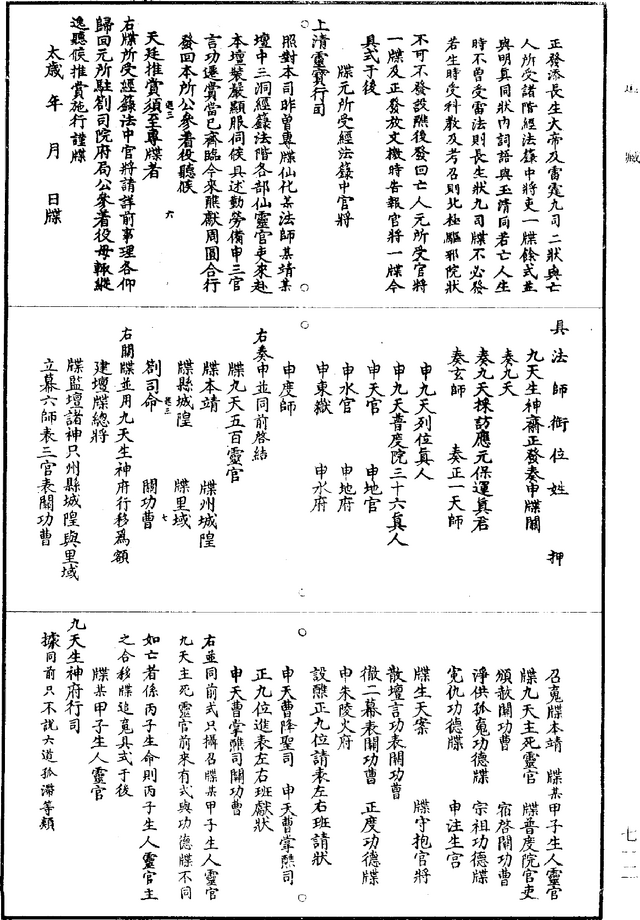 正發添長生大帝及雷霆九司二狀與亡
人所受諸階經法籙中將吏一牒餘式並
與明真同狀內詞語與玉清同若亡人生
時不曾受雷法則長生狀九司牒不必發
若生時受科教及考召則北極驅邪院狀
不可不發設醮後發回亡人元所受官將
一牒及正發放文檄時告報官將一牒今
具式于後
牒元所受經法籙中官將
上清靈寶行司
照對本司昨曾專牒仙化某法師某靖某
壇中三洞經籙法階各部仙靈官吏來赴
本壇裝嚴顯服伺候具述勤勞備申三官
言功遷賞當已齋臨今來醮獻周圓合行
發回本所公參着役聽候
天廷推賞須至專牒者
右牒所受經籙法中官將請詳前事理各仰
歸回元所駐劄司院府局公參着役毋輒縱
逸聽候推賞施行謹牒
太歲 年 月 日牒
具法師銜位姓 押
九天生神齋正發奏申牒關
奏九天
奏九天採訪應元保運真君
奏玄師 奏正一天師
申九天列位真人
申九天普度院三十六真人
申天官 申地官
申水官 申地府
申東嶽 申水府
申度師
右奏申並同前啓結
牒九天五百靈官
牒本靖 牒州城隍
牒縣城隍 牒里域
劄司命 關功曹
右關牒並用九天生神府行移爲額
建壇牒總將
牒監壇諸神只州縣城隍與里域
立幕六師表三官表關功曹
召䰟牒本靖 牒某甲子生人靈官
牒九天主死靈官 牒普度院官吏
頒赦關功曹 宿啓關功曹
淨供孤䰟功德牒 宗祖功德牒
寃仇功德牒 申注生宮
牒生天案 牒守抱官將
散壇言功表關功曹
徹二幕表關功曹 正度功德牒
申朱陵火府
設醮正九位請表左右班請狀
申天曹降聖司 申天曹掌醮司
正九位進表左右班獻狀
申天曹掌醮司關功曹
右並同前式只攝召牒某甲子生人靈官
九天主死靈官前來有式與功德牒不同
如亡者係丙子生命則丙子生人靈官主
之合移牒追䰟具式于後
牒某甲子生人靈官
九天生神府行司
據同前只不說六道孤滯等類